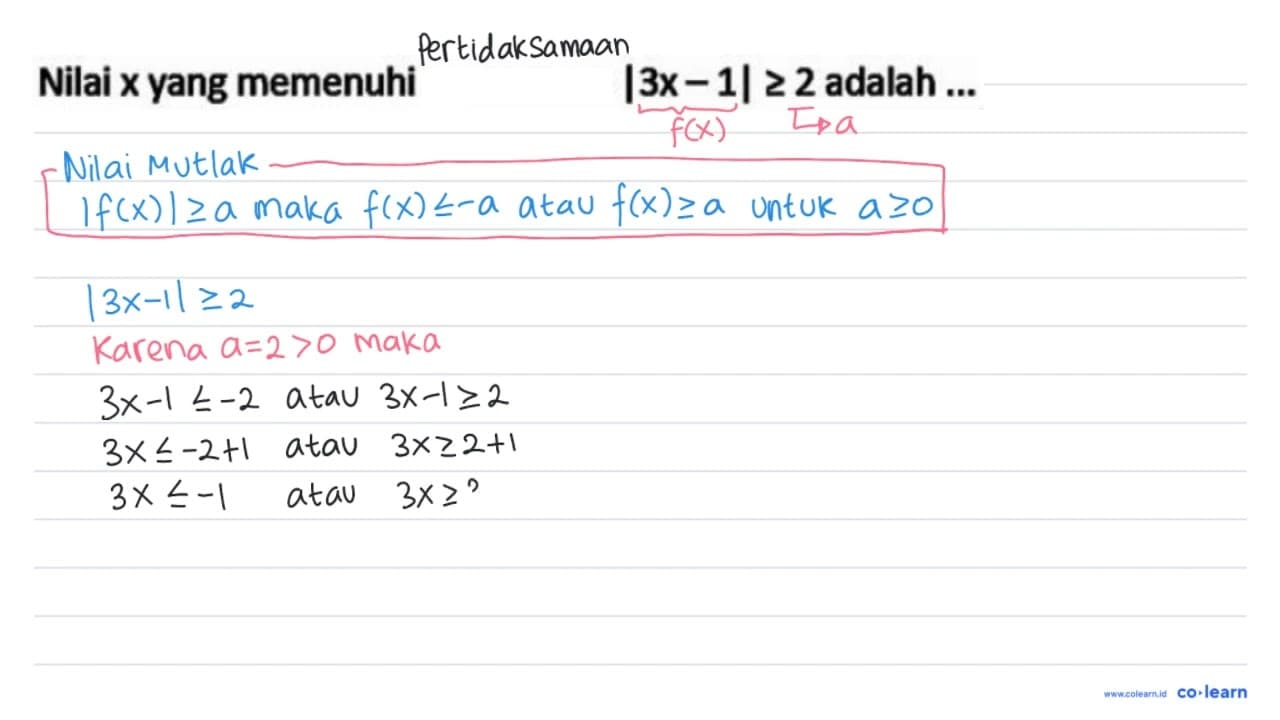 Pertidaksamaan
Nilai x yang memenuhi |3x – 1| ≥ 2 adalah ...
f(x) a
Nilai Mutlak
|f(x)| ≥ a maka f(x) ≤ -a atau f(x) ≥ a untuk a ≥ 0
|3x-1| ≥ 2
Karena a = 2 > 0 maka
3x-1 ≤ -2 atau 3x-1 ≥ 2
3x ≤ -2+1 atau 3x ≥ 2+1
3x ≤ -1 atau 3x ≥
www.colearn.id co·learn